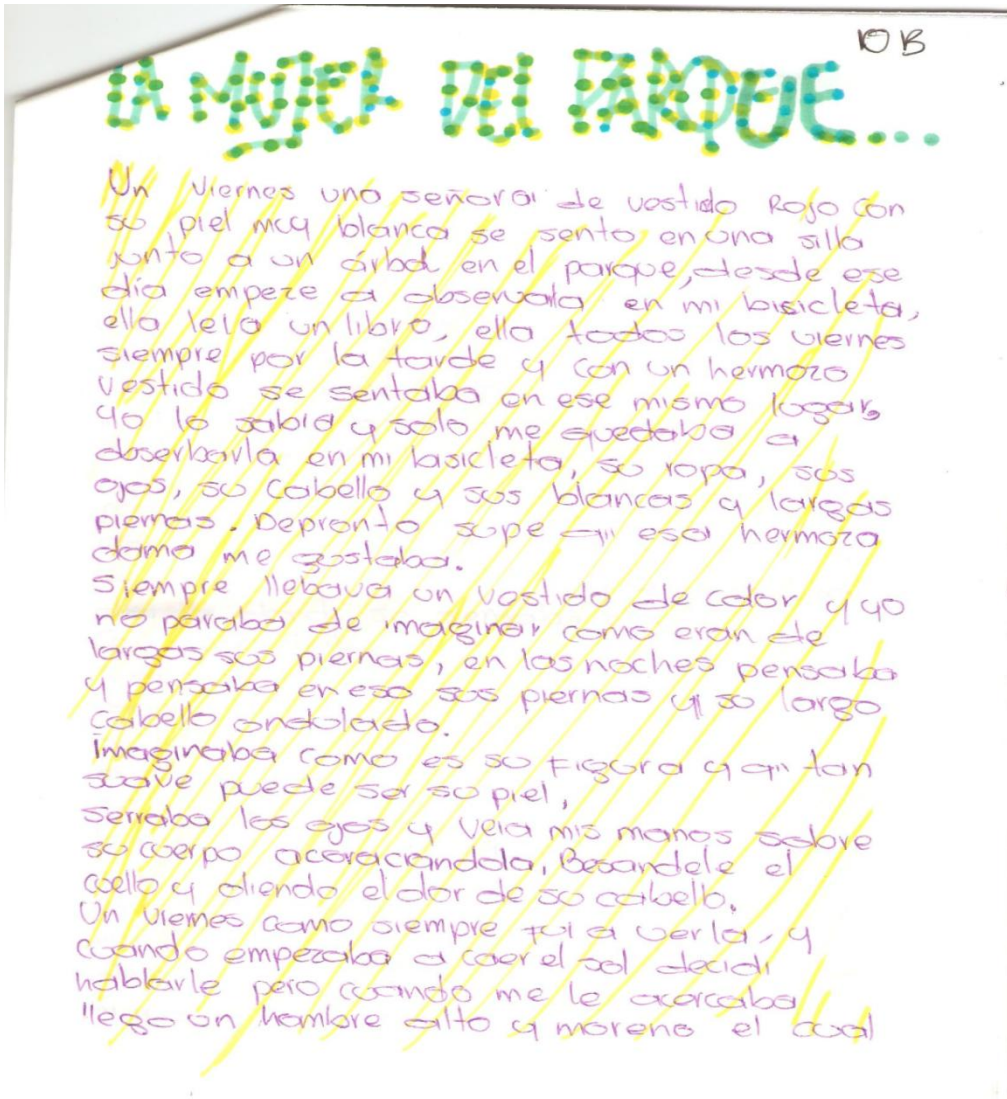 10 B
LA MUJER DEL PARQUE...
Un viernes una señora de vestido Rojo con
su piel muy blanca se sento en una silla
junto a un árbol en el parque, desde ese
día empeze a observala en mi bisicleta,
ella leia un libro, ella todos los viernes
siempre por la tarde y con un hermozo
vestido se sentaba en ese mismo lugar,
yo lo sabia y solo me quedaba a
obserbarla en mi bisicleta, su ropa, sus
ojos, su cabello y sus blancas y largas
piernas. Depronto supe qu esa hermoza
dama me gustaba.
Siempre llebava un vestido de color y yo
no paraba de imaginar como eran de
largas sus piernas, en las noches pensaba
y pensaba en eso sus piernas y su largo
cabello ondulado.
Imaginaba como es su Figura y qu tan
suave puede ser su piel,
Serraba los ojos y veia mis manos sobre
su cuerpo acaraciandola, Besandele el
cuello y oliendo el olor de su cabello.
Un viernes como siempre fui a verla, y
cuando empezaba a caer el sol decidi
hablarle pero cuando me le acarcaba
llego un hombre alto y moreno el cual